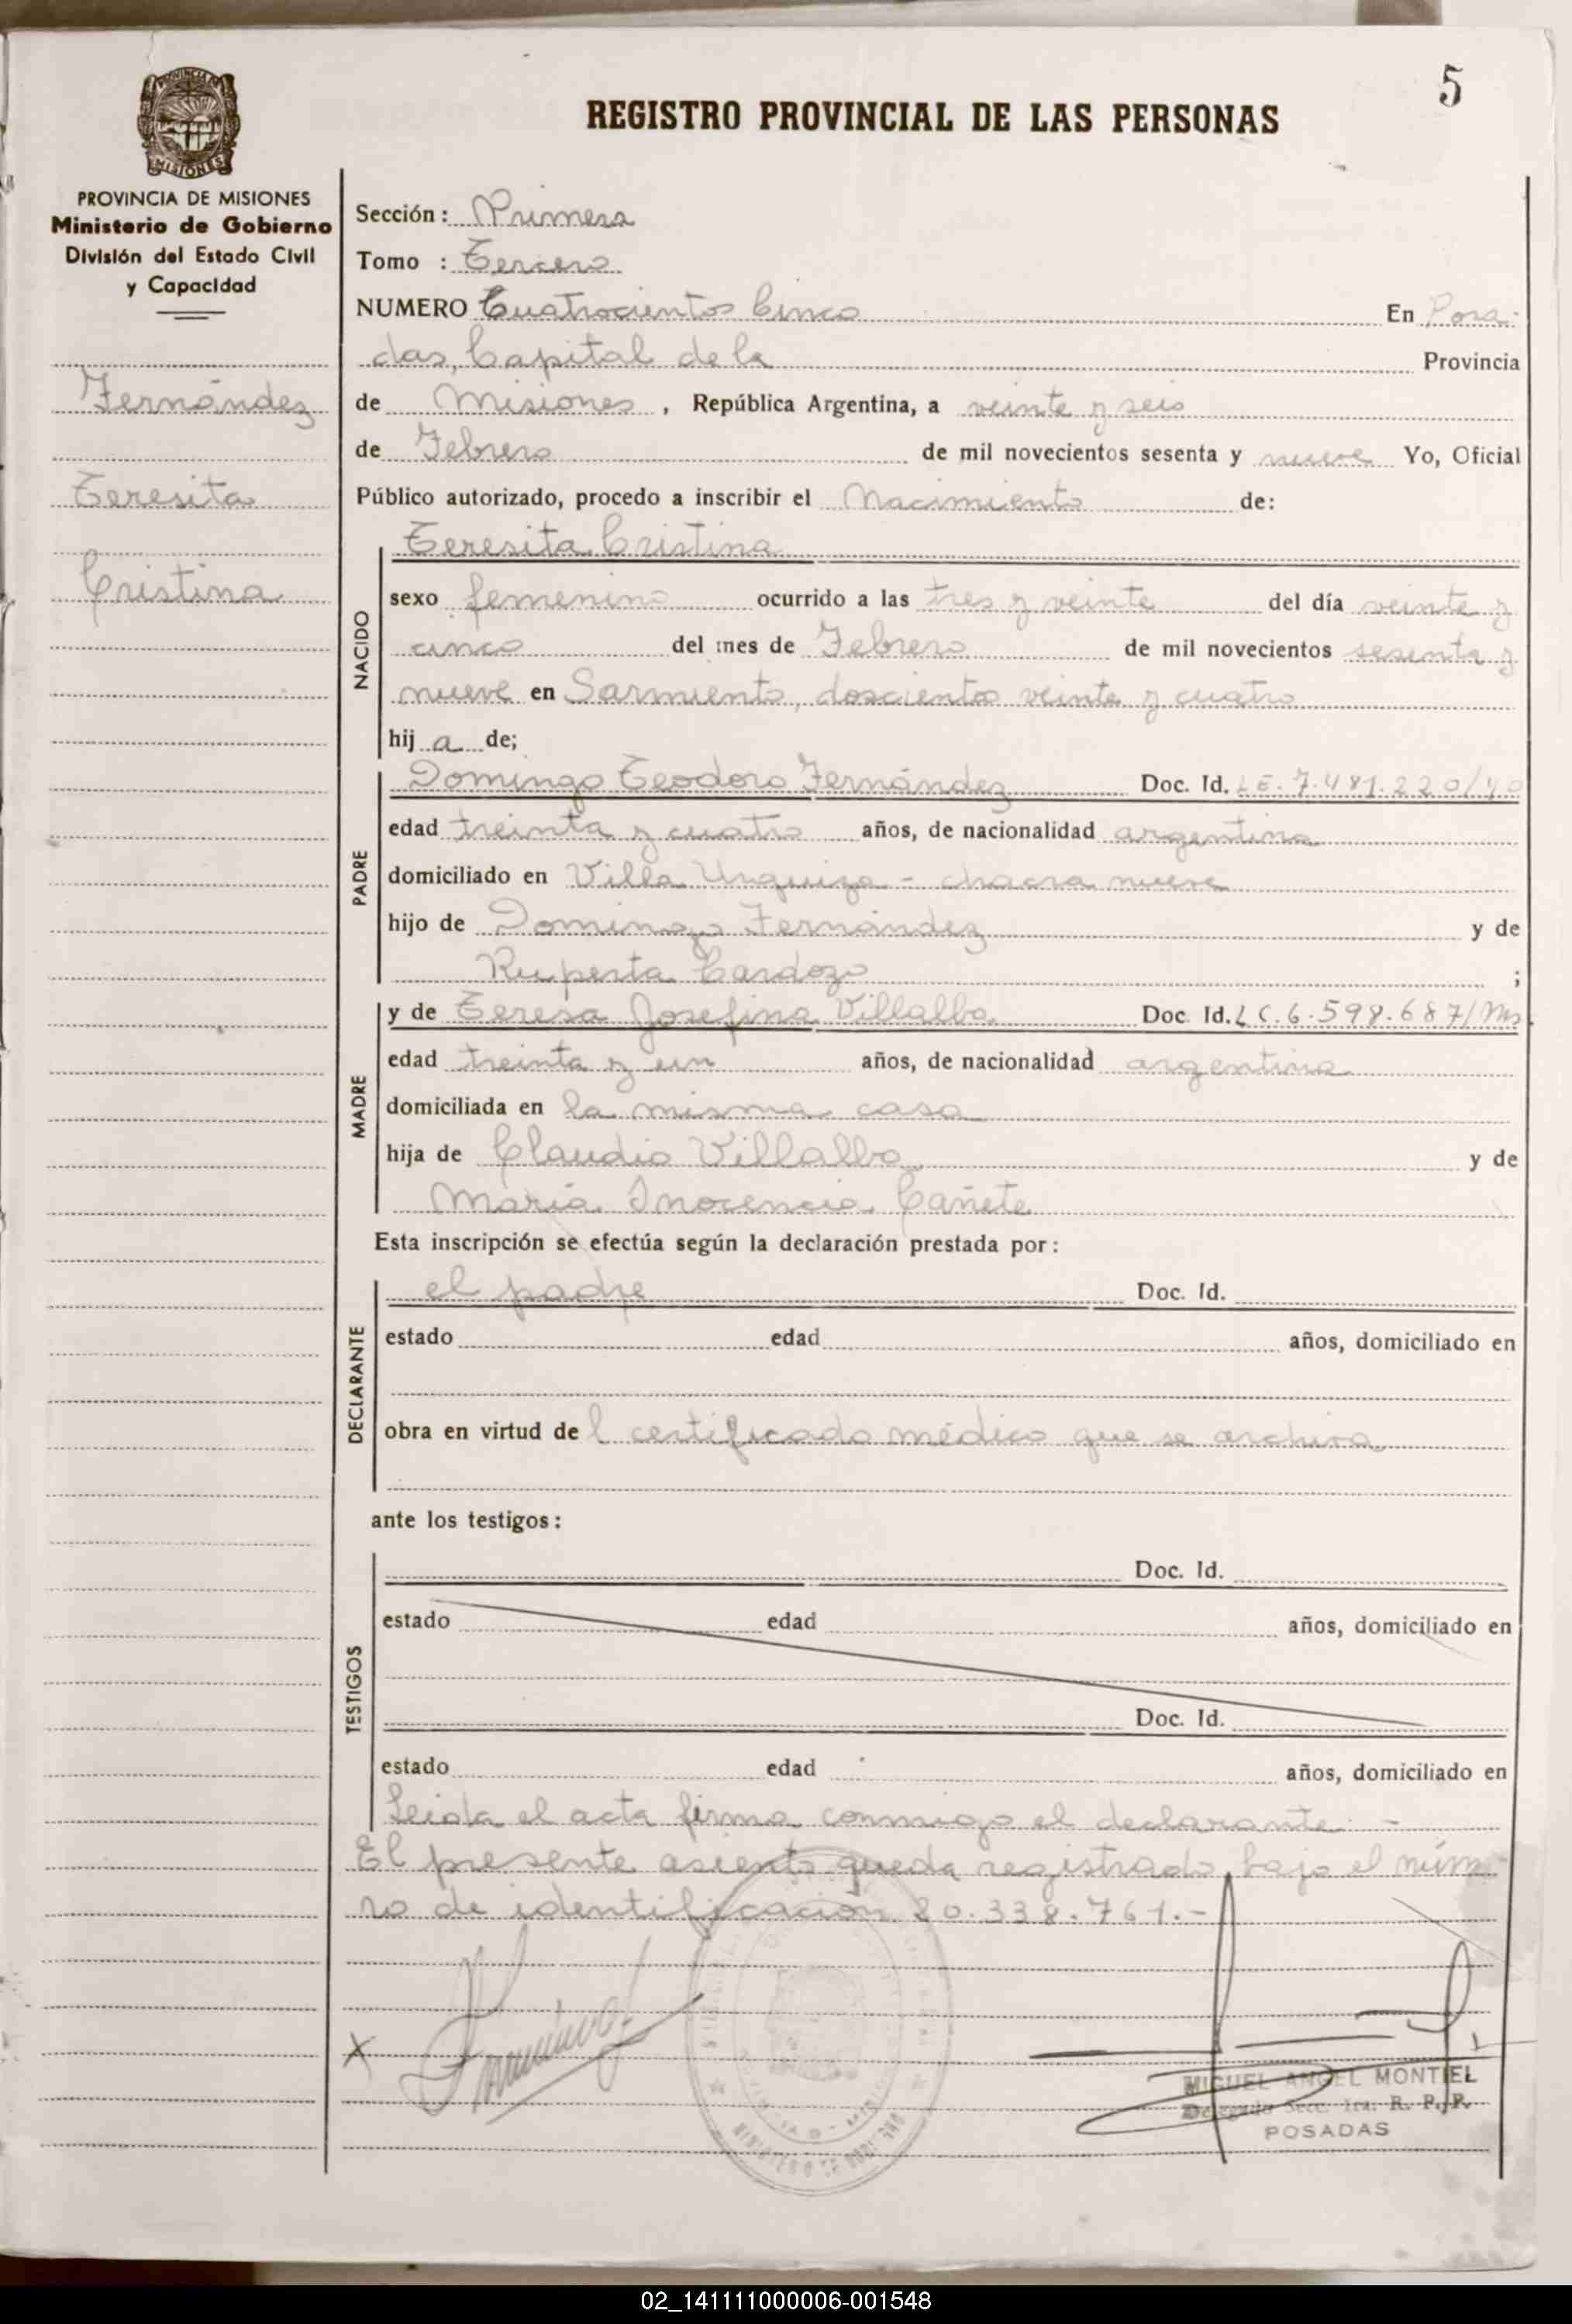 5
REGISTRO PROVINCIAL DE LAS PERSONAS
MISIONES
PROVINCIA DE MISIONES
Ministerio de Gobierno
División del Estado Civil
y Capacidad
Fernández
Teresita
Cristina
Sección: Primera
Tomo : Tercero
NUMERO Cuatrocientos Cinco En Posa-
das, Capital de la Provincia
de Misiones, República Argentina, a veinte y seis
de Febrero de mil novecientos sesenta y nueve Yo, Oficial
Público autorizado, procedo a inscribir el Nacimiento de:
NACIDO
Teresita Cristina
sexo femenino ocurrido a las tres y veinte del día veinte y
cinco del mes de Febrero de mil novecientos sesenta y
nueve en Sarmiento, doscientos veinte y cuatro
hij a de;
PADRE
Domingo Teodoro Fernández Doc. Id. LE. 7.481.220/40
edad treinta y cuatro años, de nacionalidad argentina
domiciliado en Villa Urquiza - chacra nueve
hijo de Domingo Fernández y de
Ruperta Cardozo ;
MADRE
y de Teresa Josefina Villalba Doc. Id. LC. 6.598.687/Ms
edad treinta y un años, de nacionalidad argentina
domiciliada en la misma casa
hija de Claudio Villalba y de
María Inocencia Cañete
Esta inscripción se efectúa según la declaración prestada por:
DECLARANTE
el padre Doc. Id.
estado edad años, domiciliado en
obra en virtud de l certificado médico que se archiva
ante los testigos:
TESTIGOS
Doc. Id.
estado edad años, domiciliado en
Doc. Id.
estado edad años, domiciliado en
Leida el acta firma conmigo el declarante. -
El presente asiento queda registrado bajo el núme-
ro de identificación 20.338.761.-
X
MIGUEL ANGEL MONTIEL
Delegado Secc. 1ra. R. P. P.
POSADAS
02_141111000006-001548